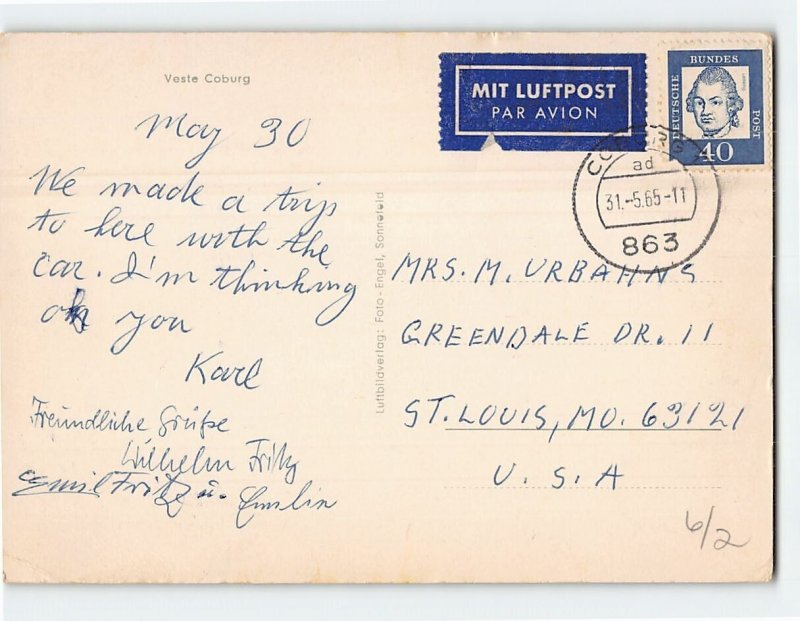 Veste Coburg
May 30
We made a trip
to here with the
car. I'm thinking
of you
Karl
Freundliche Grüße
Wilhelm Fritz
Emil Fritz u.
Luftbildverlag: Foto-Engel, Sonnefeld
MIT LUFTPOST
PAR AVION
DEUTSCHE
BUNDES
POST
40
COBURG
ad
31.-5.65-11
863
MRS. M. URBAHNS
GREENDALE DR. 11
ST. LOUIS, MO. 63121
U. S. A
6/2